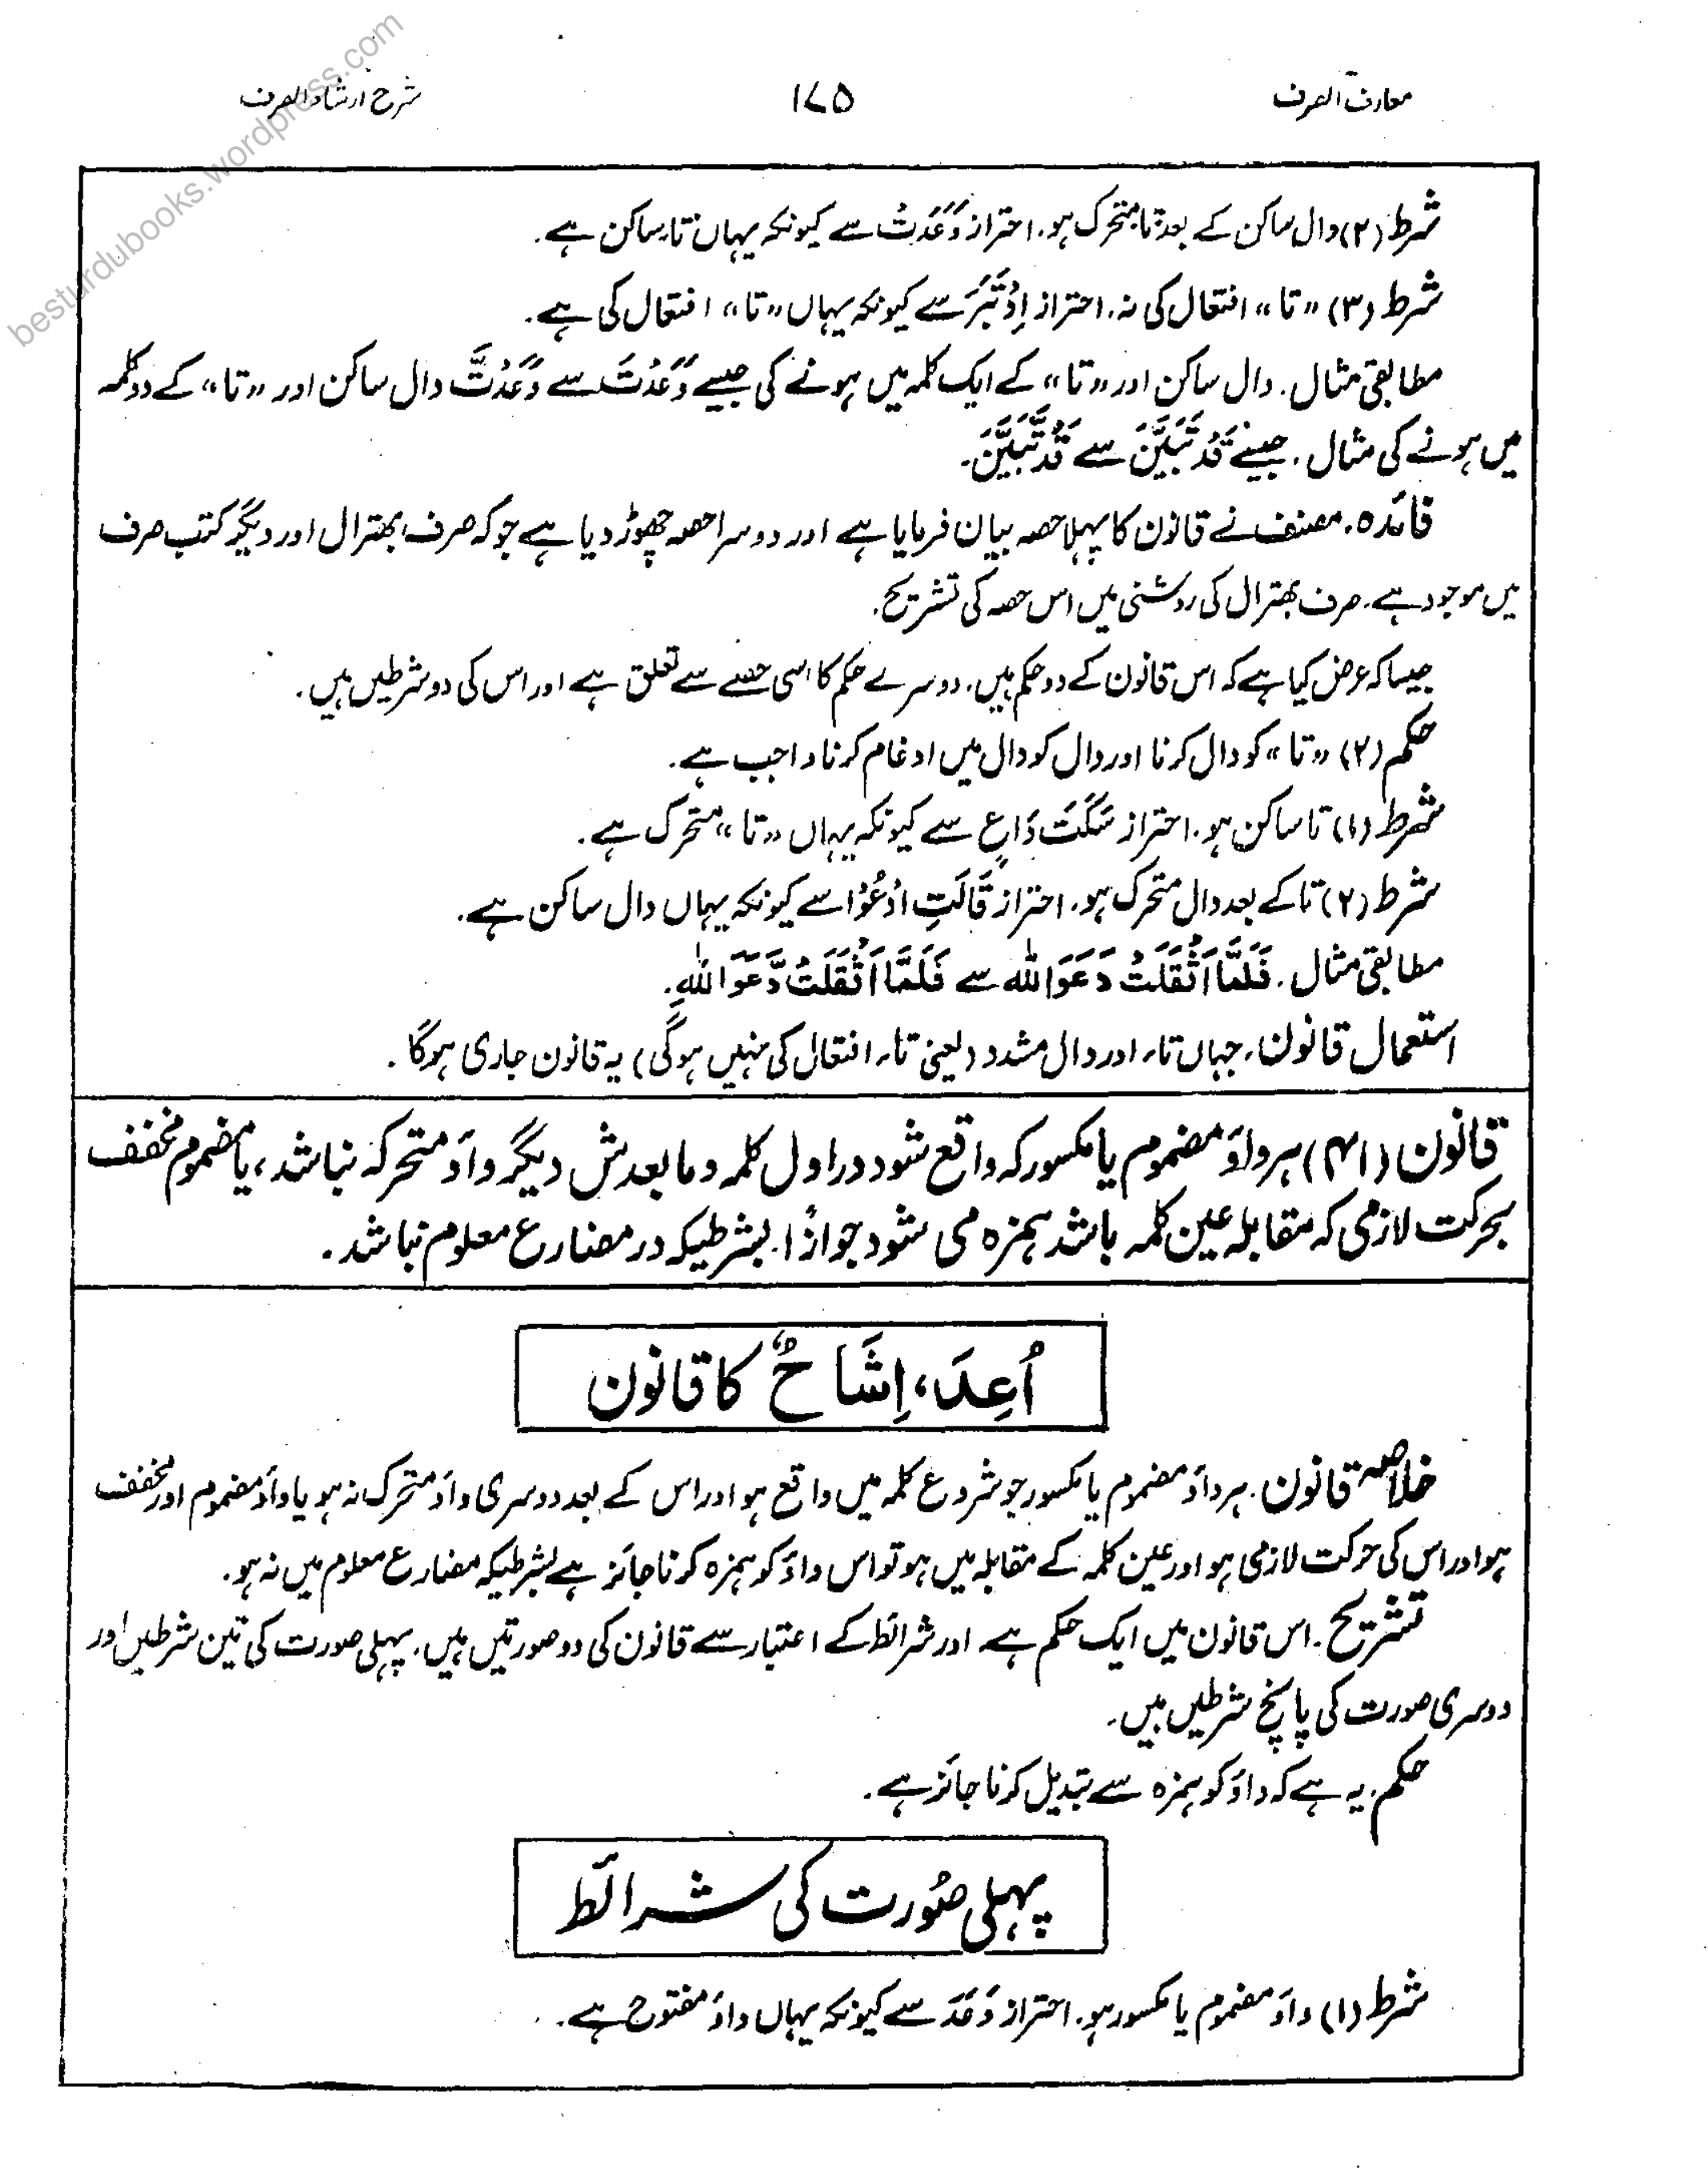 معارف الصرف
۱۷۵
شرح ارشاد الصرف
besturdubooks.wordpress.com
شرط (۲) دال ساکن کے بعد تا متحرک ہو، احتراز وَعَدَتْ سے کیونکہ یہاں تا ساکن ہے۔
شرط (۳) "تا" افتعال کی نہ، احتراز اِدْتَبَرَ سے کیونکہ یہاں "تا" افتعال کی ہے۔
مطابقی مثال. دال ساکن اور "تا" کے ایک کلمہ میں ہونے کی جیسے وَعَدْتَ سے وَعَدْتَّ دال ساکن اور "تا" کے دو کلمہ
میں ہونے کی مثال. جیسے قَدْ تَبَیَّنَ سے قَدْ تَّبَیَّنَ۔
فائدہ. مصنف نے قانون کا پہلا حصہ بیان فرمایا ہے اور دوسرا حصہ چھوڑ دیا ہے جو کہ صرف بھترال اور دیگر کتب صرف
میں موجود ہے. صرف بھترال کی روشنی میں اس حصہ کی تشریح.
جیسا کہ عرض کیا ہے کہ اس قانون کے دو حکم ہیں، دوسرے حکم کا اسی حصے سے تعلق ہے اور اس کی دو شرطیں ہیں.
حکم (۲) "تا" کو دال کرنا اور دال کو دال میں ادغام کرنا واجب ہے.
شرط (۱) تا ساکن ہو. احتراز سَکَتَ دَاعٍ سے کیونکہ یہاں "تا" متحرک ہے.
شرط (۲) تا کے بعد دال متحرک ہو. احتراز قَالَتِ ادْعُوْا سے کیونکہ یہاں دال ساکن ہے.
مطابقی مثال. فَلَمَّا اَثْقَلَتْ دَعَوَا اللہ سے فَلَمَّا اَثْقَلَتْ دَّعَوَا اللہَ.
استعمال قانون، جہاں تاء اور دال مشدد (یعنی تاء افتعال کی نہیں ہوگی) یہ قانون جاری ہوگا.
قانون (۴۱) ہر واؤ مضموم یا مکسور کہ واقع شود در اول کلمہ و ما بعدش دیگر واؤ متحرکہ نباشد، یا مضموم مخفف
بحرکت لازمی کہ مقابلہ عین کلمہ باشد ہمزہ می شود جوازًا. بشرطیکہ در مضارع معلوم نباشد.
اُعِدَ، اِشَاحٌ کا قانون
خلاصہ قانون. ہر واؤ مضموم یا مکسور جو شروع کلمہ میں واقع ہو اور اس کے بعد دوسری واؤ متحرک نہ ہو یا واؤ مضموم اور مخفف
ہو اور اس کی حرکت لازمی ہو اور عین کلمہ کے مقابلہ میں ہو تو اس واؤ کو ہمزہ کرنا جائز ہے بشرطیکہ مضارع معلوم میں نہ ہو.
تشریح. اس قانون میں ایک حکم ہے اور شرائط کے اعتبار سے قانون کی دو صورتیں ہیں. پہلی صورت کی تین شرطیں اور
دوسری صورت کی پانچ شرطیں ہیں۔
حکم. یہ ہے کہ واؤ کو ہمزہ سے تبدیل کرنا جائز ہے.
پہلی صُورت کی شرائط
شرط (۱) واؤ مضموم یا مکسور ہو. احتراز وَعَدَ سے کیونکہ یہاں واؤ مفتوح ہے۔